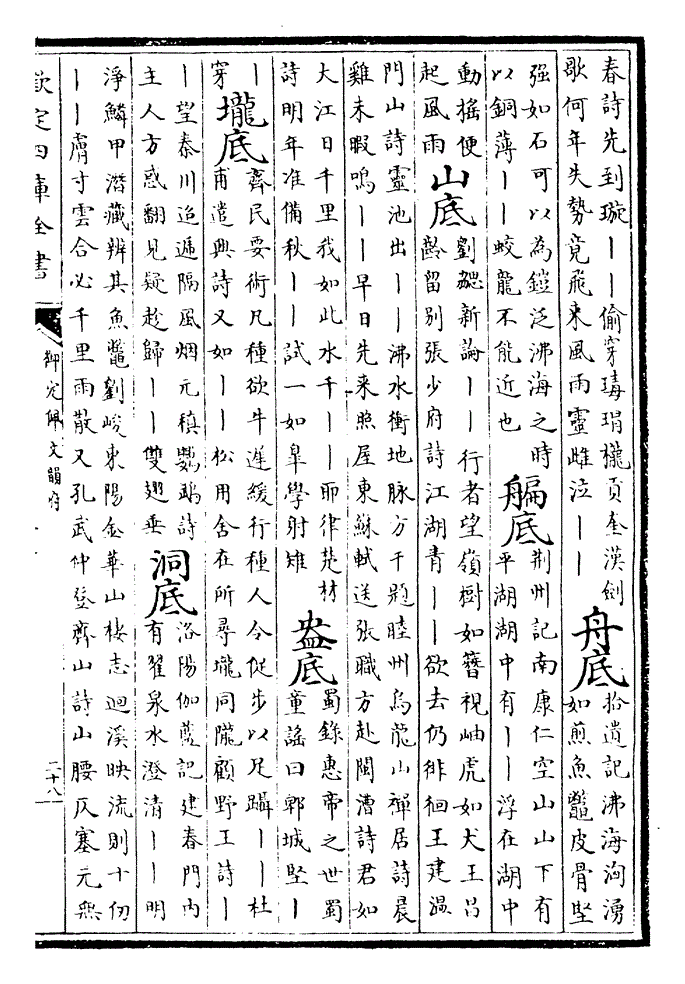 春詩先到璇丨丨偷穿瑇瑁櫳貢奎漢劍
歌何年失勢竟飛來風雨靈雌泣丨丨
舟底
拾遺記沸海洶湧
如煎魚鼈皮骨堅
强如石可以為鎧泛沸海之時
以銅薄丨丨蛟龍不能近也
艑底
荆州記南康仁空山山下有
平湖湖中有丨丨浮在湖中
動摇便
起風雨
山底
劉勰新論丨丨行者望嶺樹如簪視岫虎如犬王昌
齡留别張少府詩江湖青丨丨欲去仍徘徊王建温
門山詩靈池出丨丨沸水衝地脉方干題睦州烏龍山禪居詩晨
雞未暇鳴丨丨早日先来照屋東蘇軾送張職方赴閩漕詩君如
大江日千里我如此水千丨丨耶律楚材
詩明年准備秋丨丨試一如臯學射雉
盎底
蜀錄惠帝之世蜀
童謡曰郫城堅丨
丨
穿
壠底
齊民要術凡種欲牛遲緩行種人令促步以足躡丨丨杜
甫遣興詩又如丨丨松用舍在所尋壠同隴顧野王詩丨
丨望秦川迢遞隔風烟元稹鸚鵡詩
主人方惑翻見疑趁歸丨丨雙翅垂
洞底
洛陽伽藍記建春門内
有翟泉水澄清丨丨明
淨鱗甲潛藏辨其魚鼈劉峻東陽金華山棲志迴溪映流則十仞
丨丨膚寸雲合必千里雨散又孔武仲登齊山詩山腰仄塞元無
欽定四庫全書
御定佩文韻府
二十八